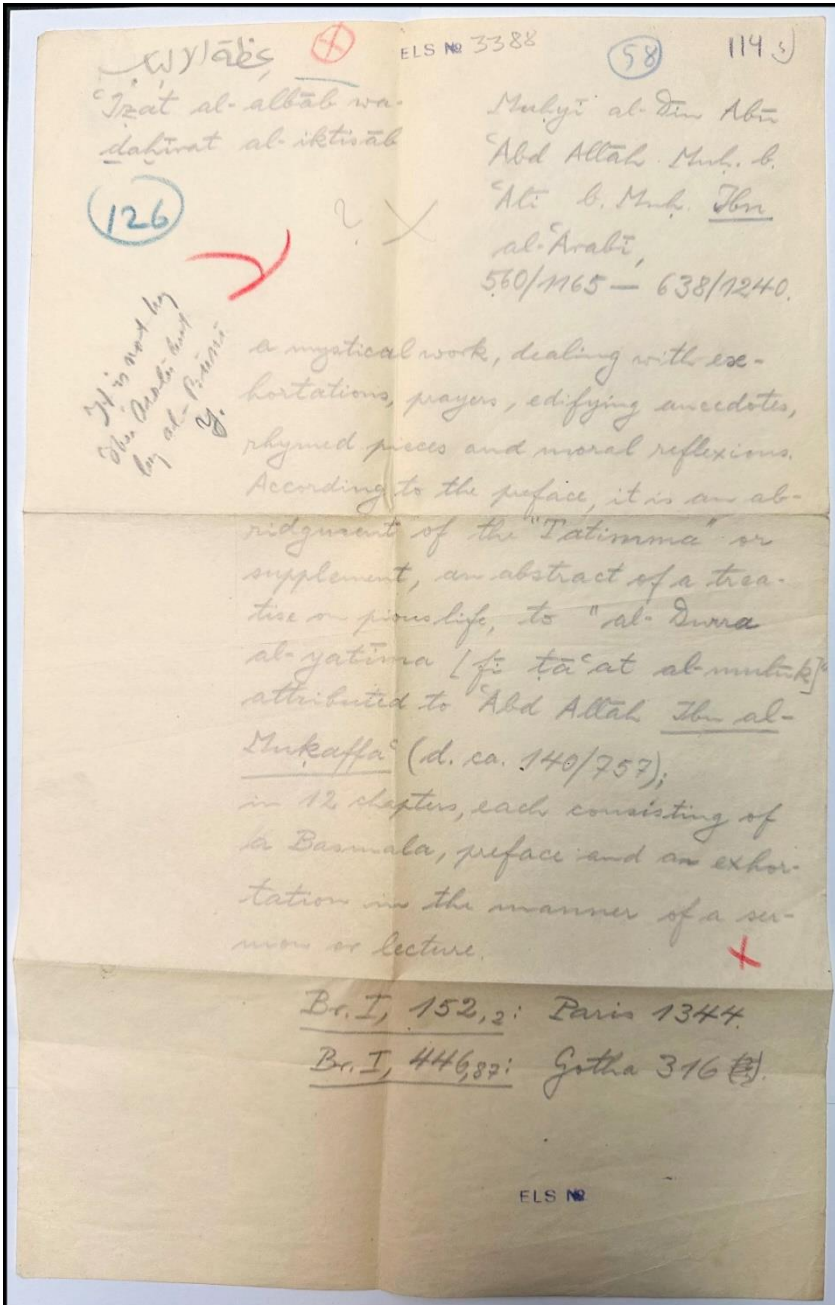 عظة الالباب
ELS № 3388
58
114
ʿIẓat al-albāb wa-
ḏaḫīrat al-iktisāb
126
?
Muḥyī al-Dīn Abū
ʿAbd Allāh Muḥ. b.
ʿAlī b. Muḥ. Ibn
al-ʿArabī,
560/1165 — 638/1240.
It is not by
Ibn Arabi but
by al-Būnī
y.
a mystical work, dealing with ex-
hortations, prayers, edifying anecdotes,
rhymed pieces and moral reflexions.
According to the preface, it is an ab-
ridgment of the "Tatimma" or
supplement, an abstract of a trea-
tise on pious life, to "al-Durra
al-yatīma [fī ṭāʿat al-mulūk]"
attributed to ʿAbd Allāh Ibn al-
Muḳaffaʿ (d. ca. 140/757);
in 12 chapters, each consisting of
a Basmala, preface and an exhor-
tation in the manner of a ser-
mon or lecture.
Br. I, 152,2: Paris 1344.
Br. I, 446,87: Gotha 316
ELS №